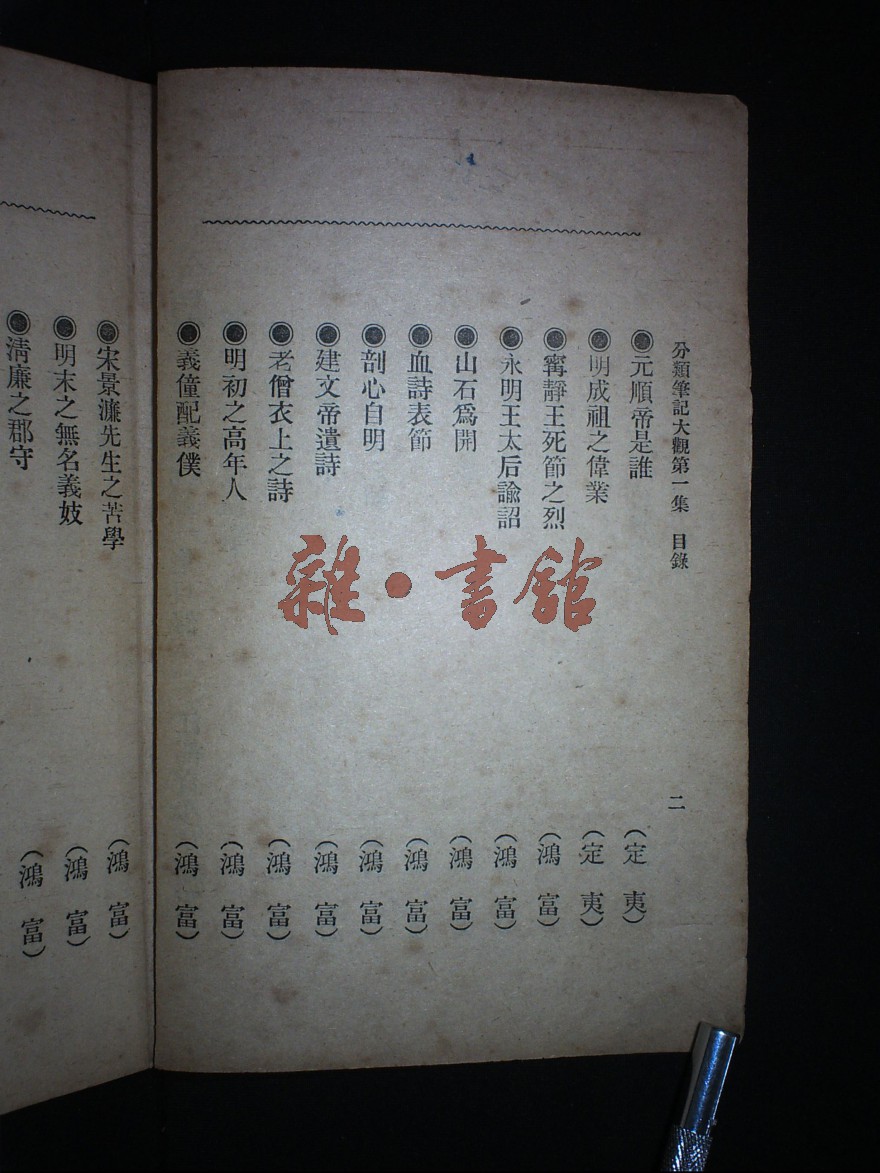 分類筆記大觀第一集 目錄 二
◉元順帝是誰 (定夷)
◉明成祖之偉業 (定夷)
◉寗靜王死節之烈 (鴻富)
◉永明王太后諭詔 (鴻富)
◉山石爲開 (鴻富)
◉血詩表節 (鴻富)
◉剖心自明 (鴻富)
◉建文帝遺詩 (鴻富)
◉老僧衣上之詩 (鴻富)
◉明初之高年人 (鴻富)
◉義僮配義僕 (鴻富)
◉宋景濂先生之苦學 (鴻富)
◉明末之無名義妓 (鴻富)
◉淸廉之郡守 (鴻富)
雜·書館